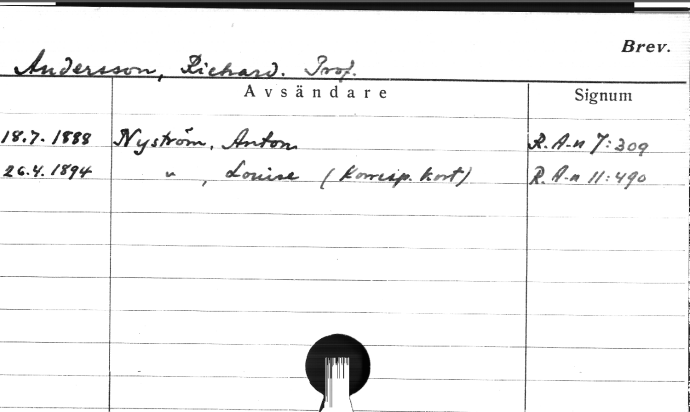 Brev.
Andersson, Richard. Prof.
Avsändare Signum
18.7.1888 Nyström, Anton R.A-n 7:309
26.4.1894 " , Louise (Korresp. kort) R.A-n 11:490